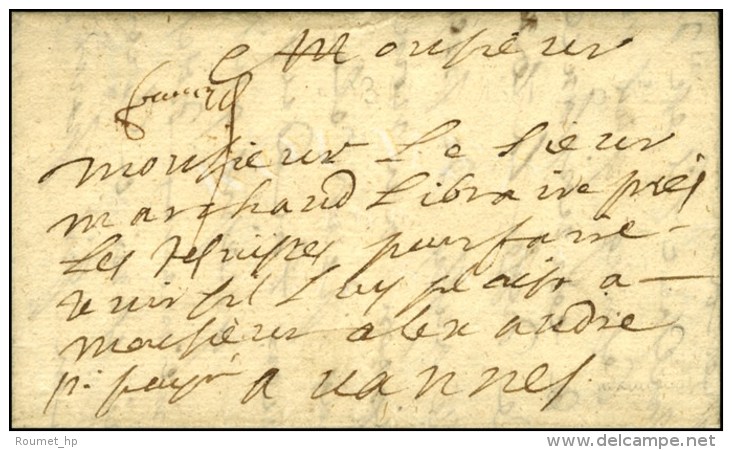 Monsieur
Monsieur Le sieur
marchand Libraire pres
Les Jesuistes pour faire
tenir sil luy plaist a
monsieur alexandre
a vannes
Roumet_hp
www.delcampe.net